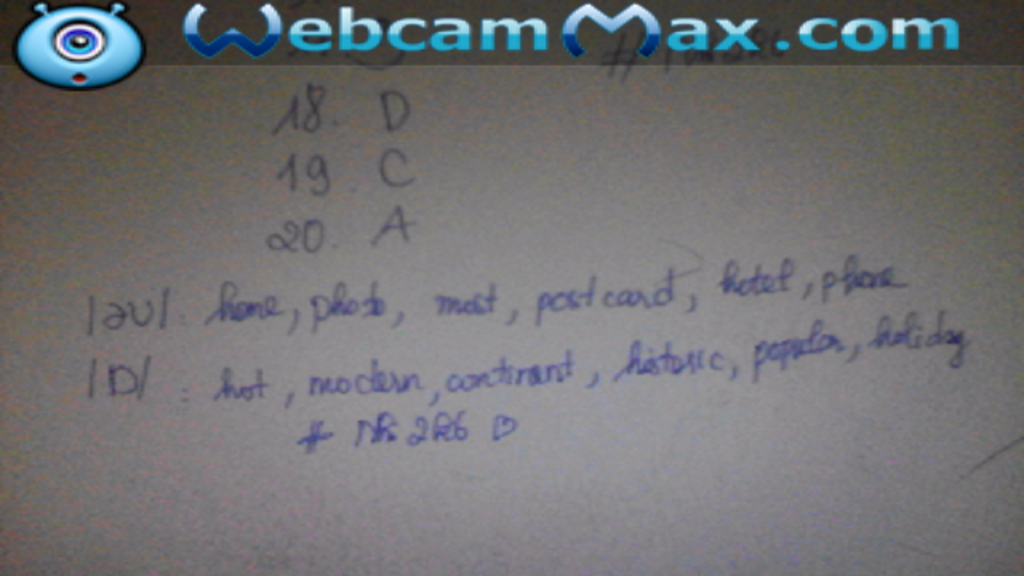 WebcamMax.com
18. D
19. C
20. A
/əʊ/: home, photo, most, postcard, hotel, phone
/ɒ/: hot, modern, continent, historic, popular, holiday
#